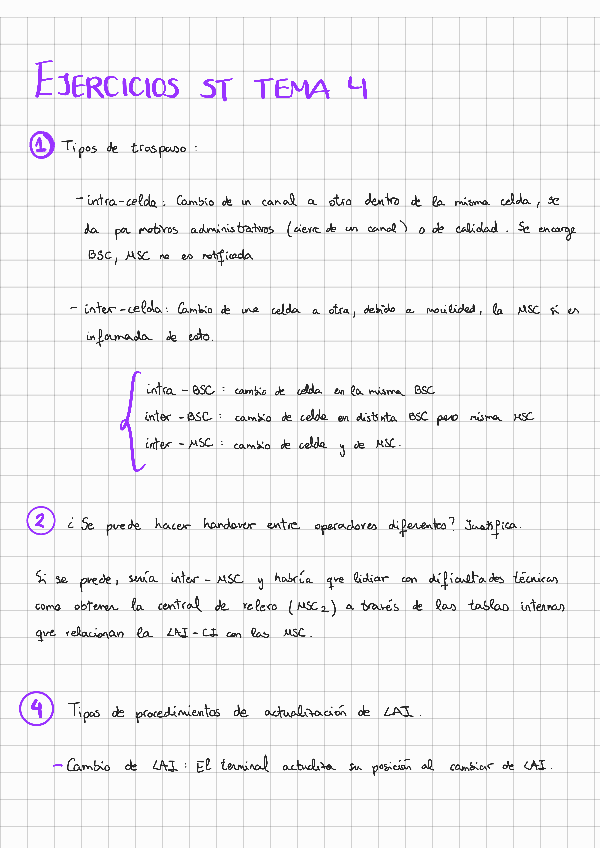 EJERCICIOS ST TEMA 4
1 Tipos de traspaso :
- intra-celda : Cambio de un canal a otro dentro de la misma celda, se
da por motivos administrativos (cierre de un canal) o de calidad. Se encarga
BSC, MSC no es notificada
- inter-celda : Cambio de una celda a otra, debido a movilidad, la MSC si es
informada de esto.
intra - BSC : cambio de celda en la misma BSC
inter - BSC : cambio de celda en distinta BSC pero misma MSC
inter - MSC : cambio de celda y de MSC.
2 ¿Se puede hacer handover entre operadores diferentes? Justifica.
Si se puede, sería inter - MSC y habría que lidiar con dificultades técnicas
como obtener la central de relevo (MSC2) a través de las tablas internas
que relacionan la LAI-CI con las MSC.
4 Tipos de procedimientos de actualización de LAI.
- Cambio de LAI : El terminal actualiza su posición al cambiar de LAI.